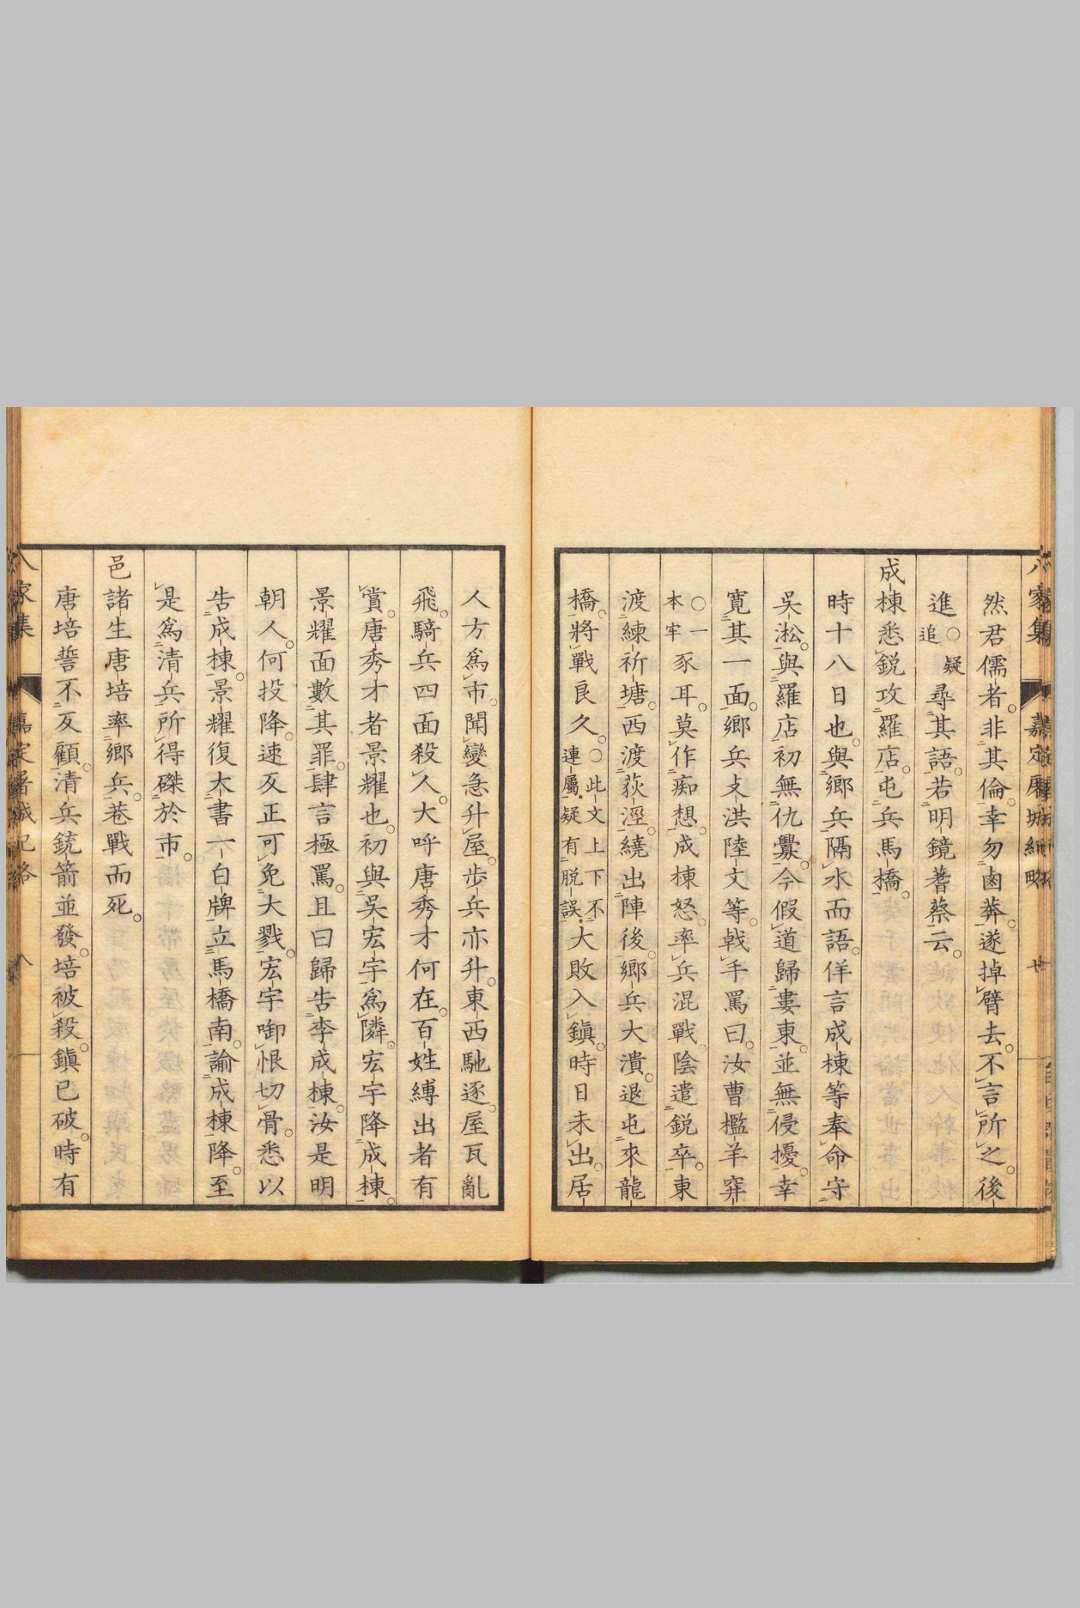 然君儒者。非其倫。幸勿鹵莽。遂掉臂去。不言所之。後
進○疑追尋其語。若明鏡蓍蔡云。
成棟悉銳攻羅店。屯兵馬橋。
時十八日也。與鄉兵隔水而語。佯言成棟等奉命守
吳淞。與羅店初無仇釁。今假道歸婁東。並無侵擾。幸
寬其一面。鄉兵支洪陸文等。戟手罵曰。汝曹檻羊穽
○一本牢豕耳。莫作痴想。成棟怒。率兵混戰。陰遣銳卒。東
渡練祈塘。西渡荻涇。繞出陣後。鄉兵大潰。退屯來龍
橋。將戰良久。○此文上下不連屬。疑有脫誤。大敗入鎮。時日未出。居
人方爲市。聞變急升屋。步兵亦升。東西馳逐。屋瓦亂
飛。騎兵四面殺人。大呼唐秀才何在。百姓縛出者有
賞。唐秀才者景耀也。初與吳宏宇爲隣。宏宇降成棟。
景耀面數其罪。肆言極罵。且曰歸告李成棟。汝是明
朝人。何投降。速反正可免大戮。宏宇啣恨切骨。悉以
告成棟。景耀復大書一白牌立馬橋南。諭成棟降。至
是爲清兵所得磔於市。
邑諸生唐培率鄉兵。巷戰而死。
唐培誓不反顧。清兵銃箭並發。培被殺。鎮已破。時有
八家集
嘉定屠城紀略
八